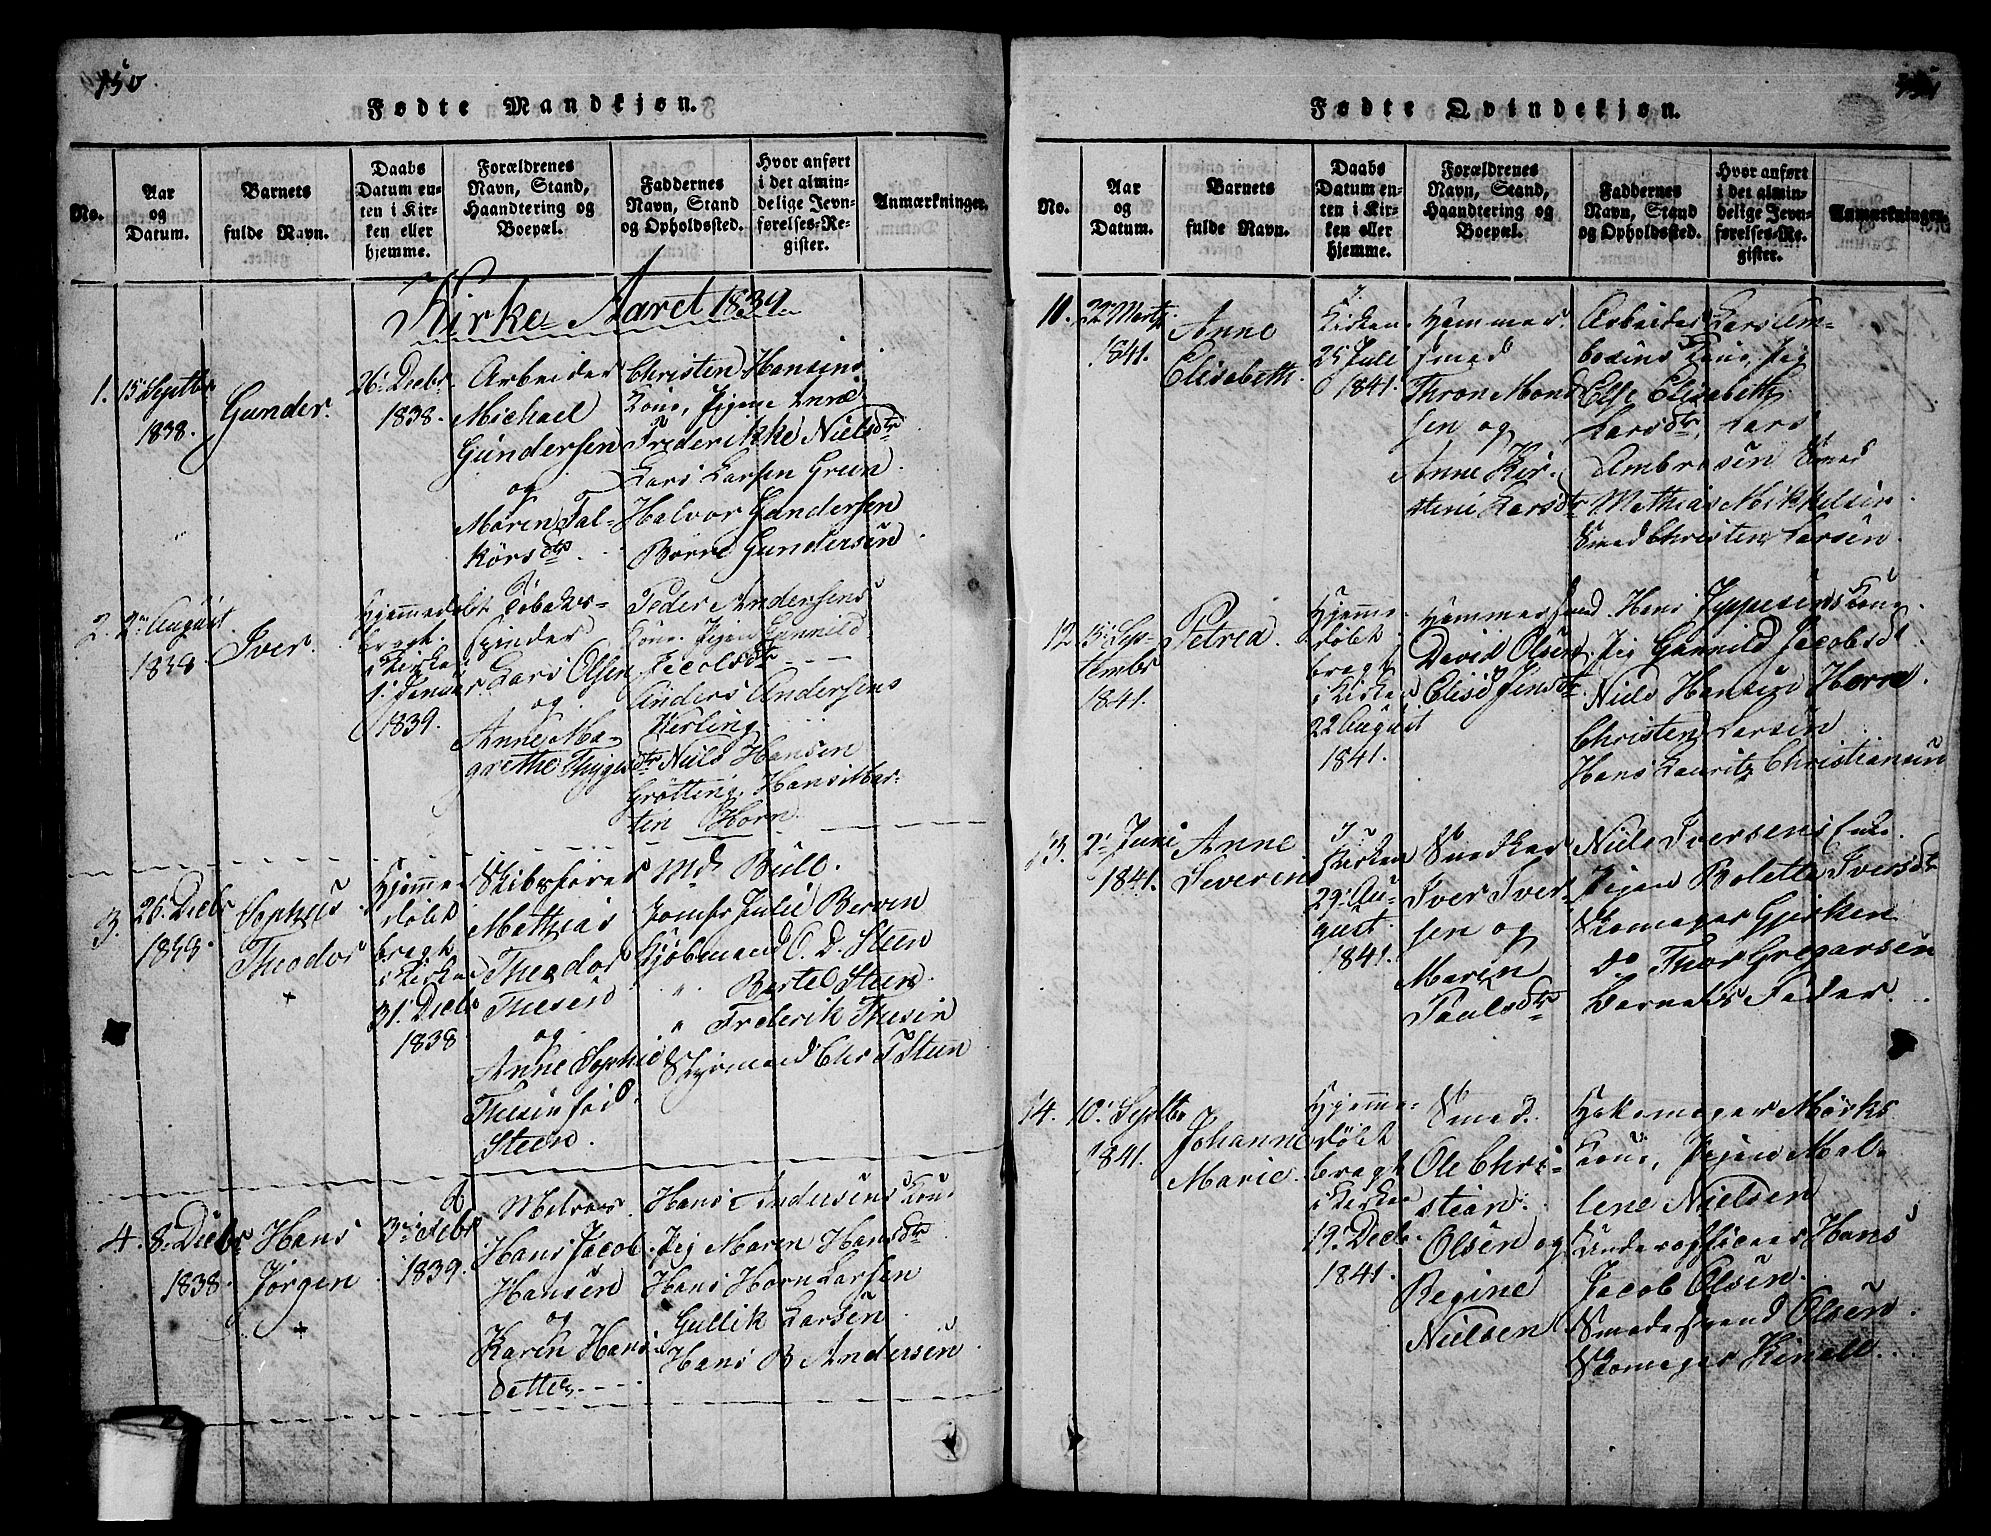 150
Fødte Mandkjøn.
No.
Aar
og
Datum.
Barnets
fulde Navn.
Daabs
Datum en-
ten i Kir-
ken eller
hjemme.
Forældrenes
Navn, Stand,
Haandtering og
Boepæl.
Faddernes
Navn, Stand
og Opholdssted.
Hvor anført
i det almin-
delige Jevn-
førelses-Re-
gister.
Anmærkninger.
Kirke Aaret 1839
1.
15 Septbr
1838.
Gunder.
26. Decbr.
1838.
Arbeider
Michael
Gundersen
og
Maren Tal-
körsdtr
Christen Hansens
Kone, Pigen Anne
Frederikke Nielsdtr
Lars Larsen Green
Halvor Gundersen
Börre Gundersen
2.
2 August
1838
Iver.
Hjemmedøbt
bragt
i Kirken
1 Januar
1839.
Tobaks-
spinder
Lars Olsen
og
Anne Ma-
grethe Thygesdtr
Peder Andersens
Kone. Pigen Gunnild
Jacobsdtr
Anders Andersens
Kerling
Niels Hansen
Grötting, Hans Mar-
tin Horn
3.
26. Decbr
1839.
Sophus
Theodor
+
Hjemme-
døbt
bragt
i Kirken
31. Decbr
1838
Skibsfører
Mathias
Theodor
Thesen
og
Anne Sophie
Thesen fød
Steen.
Md Bull.
Jomfr Julie Berven
Kjöbmand C. D. Steen
" Bertel Steen
" Frederik Thesen
Styrmand Chr T Steen
4.
8. Decbr
1838.
Hans
Jörgen
+
3 Febr
1839.
Matros
Hans Jacob
Hansen
og
Karen Hans-
datter
Hans Andersens Kone
Pig Maren Hansdtr
Hans Horn Larsen
Gullik Larsen
Hans B Andersen
151
Fødte Qvindekjøn.
No.
Aar
og
Datum.
Barnets
fulde Navn.
Daabs
Datum en-
ten i Kir-
ken eller
hjemme.
Forældrenes
Navn, Stand,
Haandtering og
Boepæl.
Faddernes
Navn, Stand
og Opholdssted.
Hvor anført
i det almin-
delige Jevn-
førelses-Re-
gister.
Anmærkninger.
11.
22 Marts
1841.
Anne
Elisabeth.
i
Kirken
25 Juli
1841.
Hammer-
smed
Thron Mond
sen og
Anne Kir-
stine Larsdtr
Arbeider Lars Am-
bosens Kone, Pig
Else Elisabeth
Larsdtr, Lars
Ambrosen Smed
Mathias Mikkelsen
Smed Christen Larsen.
12
15 Sep-
tembr
1841.
Petrea.
Hjemme-
døbt
bragt
i Kirken
22 August
1841.
Hammersmed
David Olsen
Elise Jensdtr.
Hans Jeppesens Kone
Pig Gunnild Jacobsdt
Niels Hansen Horn
Christen Larsen
Hans Lauritz Christiansen
13.
2 Juni
1841.
Anne
Severine
i
Kirken
29. Au-
gust.
1841.
Snedker
Iver Iver-
sen og
Maren
Paulsdtr
Niels Iversens Enke
Pigen Bolette Iversdt
Skomager Gjerken
Do Thor Gregersen
Barnets Fader.
14.
10. Septbr
1841.
Johanne
Marie.
Hjemme-
døbt
bragt
i Kirken
19. Decbr.
1841.
Smed.
Ole Chri-
stian
Olsen og
Regine
Nielsen
Hatemager Mörks
Kone, Pigen Mal-
lene Nielsen
Underofficeer Hans
Jacob Olsen.
Smedesvend Olsen
Skomager Kinell.